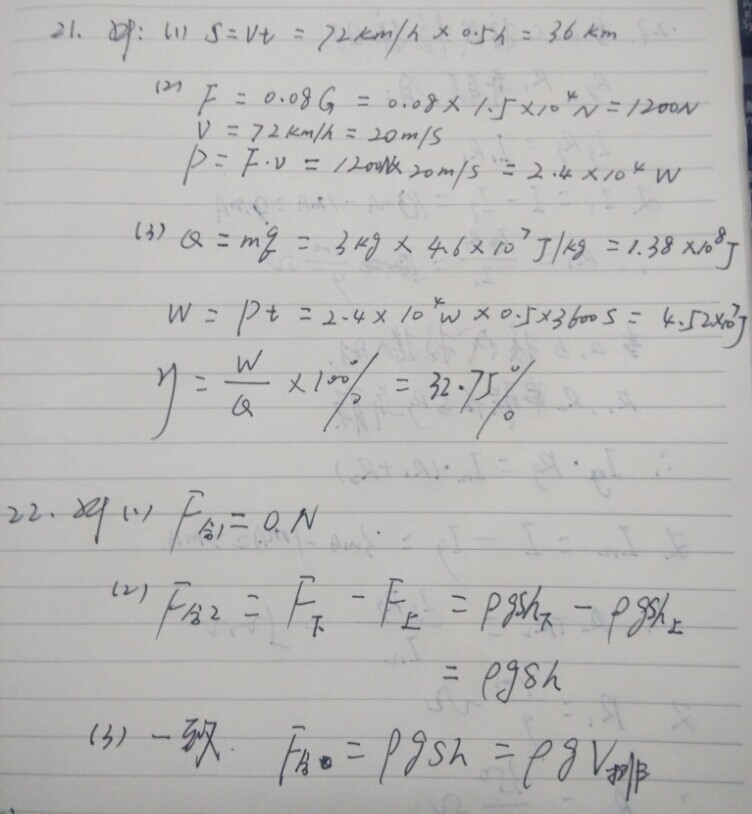 21. 解: (1) S = Vt = 72km/h × 0.5h = 36 km
(2) F = 0.08G = 0.08 × 1.5×10⁴N = 1200N
V = 72km/h = 20m/s
P = F·v = 1200N × 20m/s = 2.4×10⁴ W
(3) Q = mq = 3kg × 4.6×10⁷ J/kg = 1.38×10⁸J
W = Pt = 2.4×10⁴W × 0.5×3600s = 4.52×10⁷J
η = W/Q ×100% = 32.75%
22. 解 (1) F合1 = 0.N
(2) F合2 = F下 - F上 = ρgsh下 - ρgsh上
= ρgsh
(3) 一致. F合 = ρgsh = ρgV排